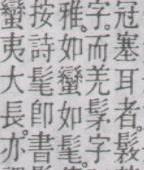 冠塞耳者。髮
字。而羌髳字
雅。如蠻如髦。
按詩髦卽書
蠻夷大長。亦